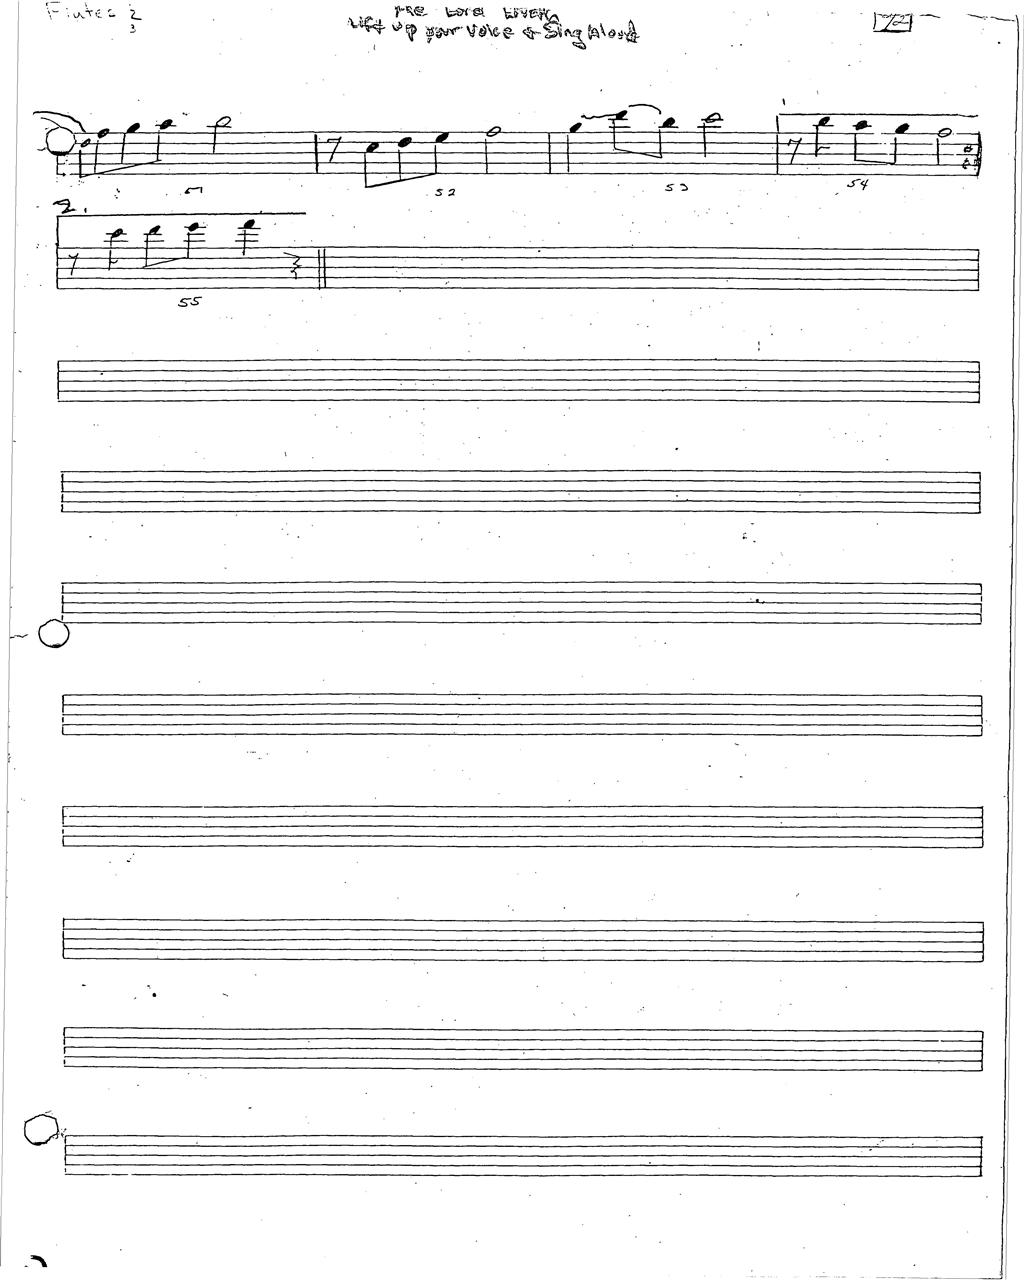 Flutes 2
3
The Lord Liveth
Lift up your voice & Sing Aloud
12
51
52
53
54
2.
55